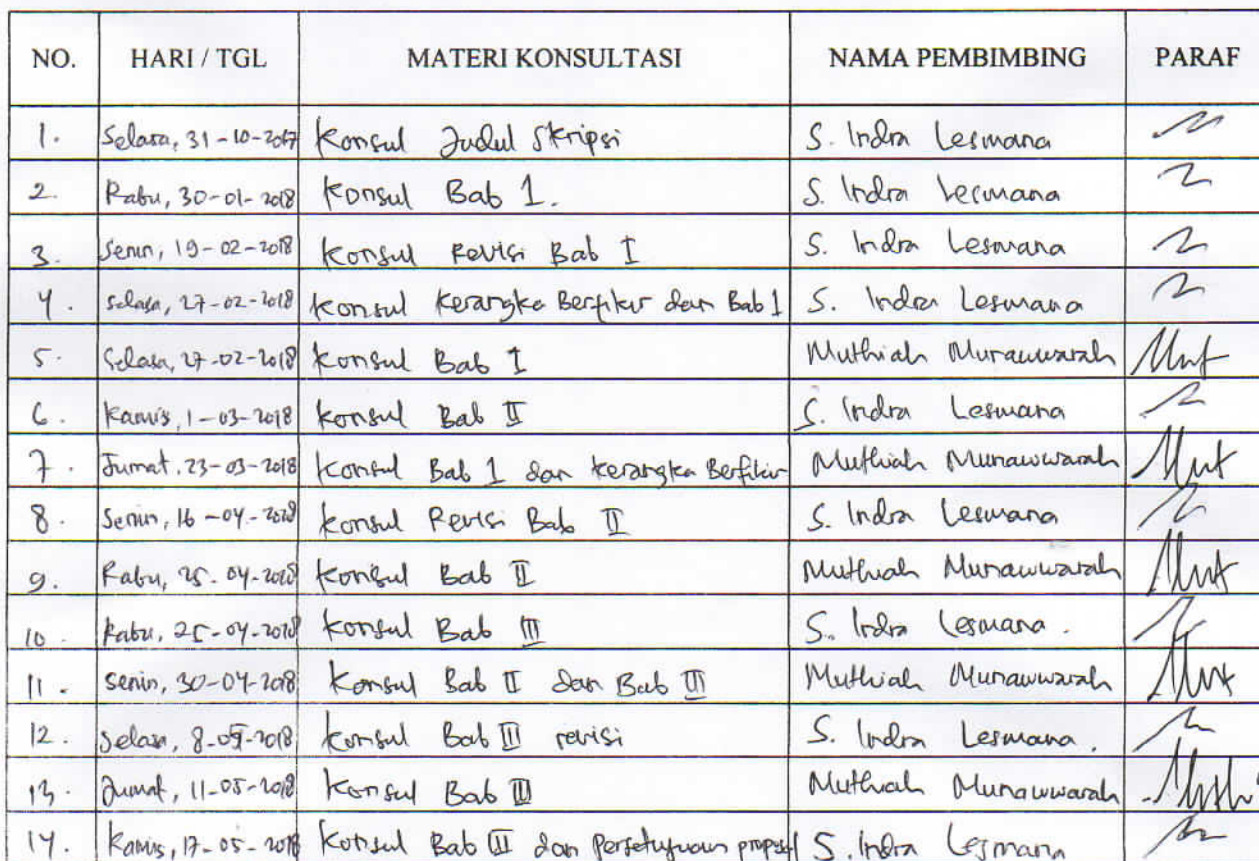 NO. HARI / TGL MATERI KONSULTASI NAMA PEMBIMBING PARAF
1. Selasa, 31-10-2017 Konsul Judul Skripsi S. Indra Lesmana
2. Rabu, 30-01-2018 Konsul Bab 1. S. Indra Lesmana
3. Senin, 19-02-2018 Konsul Revisi Bab I S. Indra Lesmana
4. Selasa, 27-02-2018 Konsul Kerangka Berfikir dan Bab 1 S. Indra Lesmana
5. Selasa, 27-02-2018 Konsul Bab I Muthiah Munawwarah
6. Kamis, 1-03-2018 Konsul Bab II S. Indra Lesmana
7. Jumat, 23-03-2018 Konsul Bab 1 dan Kerangka Berfikir Muthiah Munawwarah
8. Senin, 16-04-2018 Konsul Revisi Bab II S. Indra Lesmana
9. Rabu, 25-04-2018 Konsul Bab II Muthiah Munawwarah
10. Rabu, 25-04-2018 Konsul Bab III S. Indra Lesmana.
11. Senin, 30-04-2018 Konsul Bab II dan Bab III Muthiah Munawwarah
12. Selasa, 8-05-2018 Konsul Bab III revisi S. Indra Lesmana.
13. Jumat, 11-05-2018 Konsul Bab III Muthiah Munawwarah
14. Kamis, 17-05-2018 Konsul Bab III dan Persetujuan proposal S. Indra Lesmana